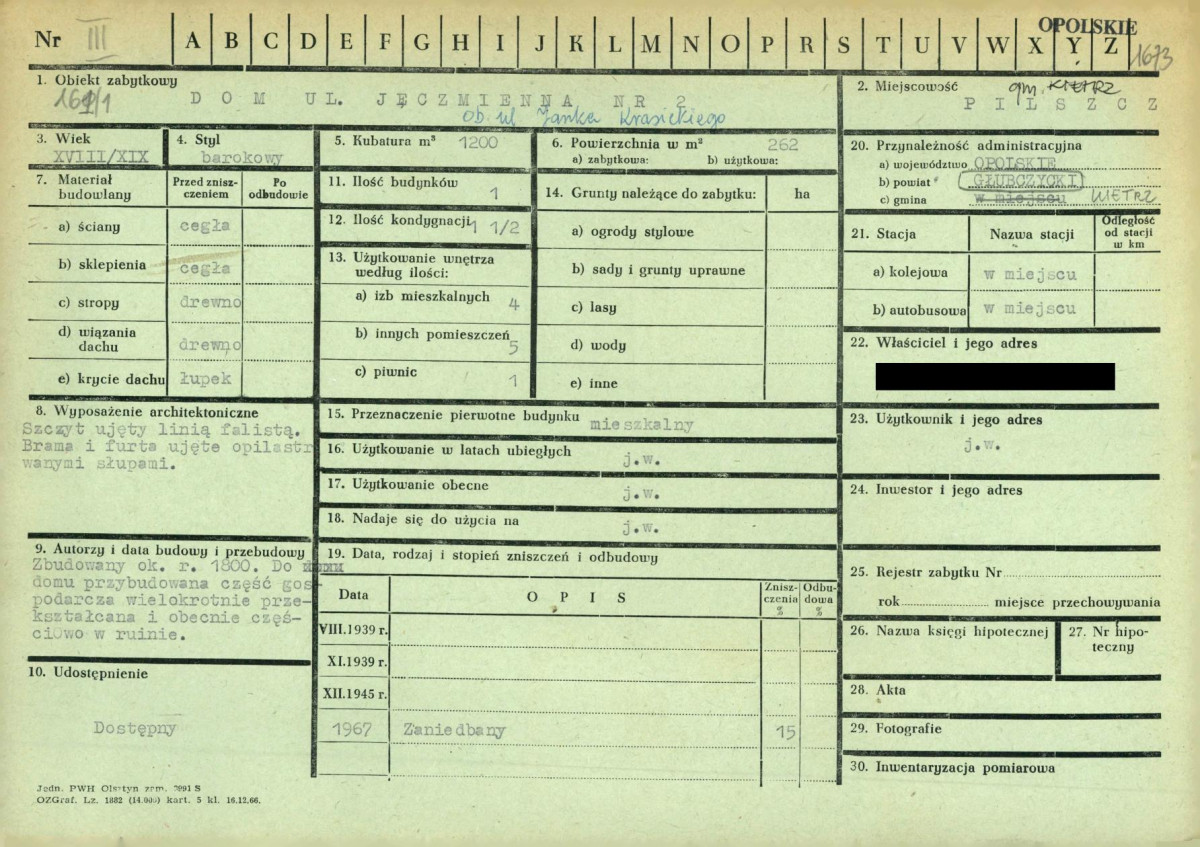 OPOLSKIE
Nr III A B C D E F G H I J K L M N O P R S T U V W X Y Z 1673
1. Obiekt zabytkowy
DOM UL. JĘCZMIENNA NR 2
Ob. ul Janka Krasickiego
2. Miejscowość gm. KIETRZ
PILSZCZ
3. Wiek
XVIII/XIX
4. Styl
barokowy
5. Kubatura m³ 1200
6. Powierzchnia w m² 262
a) zabytkowa: b) użytkowa:
7. Materiał budowlany
Przed zniszczeniem
Po odbudowie
a) ściany cegła
b) sklepienia cegła
c) stropy drewno
d) wiązania dachu drewno
e) krycie dachu łupek
11. Ilość budynków 1
12. Ilość kondygnacji 1 1/2
13. Użytkowanie wnętrza według ilości:
a) izb mieszkalnych 4
b) innych pomieszczeń 5
c) piwnic 1
14. Grunty należące do zabytku: ha
a) ogrody stylowe
b) sady i grunty uprawne
c) lasy
d) wody
e) inne
20. Przynależność administracyjna
a) województwo OPOLSKIE
b) powiat GŁUBCZYCKI
c) gmina w miejscu KIETRZ
21. Stacja
Nazwa stacji
Odległość od stacji w km
a) kolejowa w miejscu
b) autobusowa w miejscu
22. Właściciel i jego adres
8. Wyposażenie architektoniczne
Szczyt ujęty linią falistą.
Brama i furta ujęte opilastr
wanymi słupami.
15. Przeznaczenie pierwotne budynku mieszkalny
16. Użytkowanie w latach ubiegłych j.w.
17. Użytkowanie obecne j.w.
18. Nadaje się do użycia na j.w.
23. Użytkownik i jego adres
j.w.
24. Inwestor i jego adres
9. Autorzy i data budowy i przebudowy
Zbudowany ok. r. 1800. Do
domu przybudowana część gos-
podarcza wielokrotnie prze-
kształcana i obecnie częś-
ciowo w ruinie.
19. Data, rodzaj i stopień zniszczeń i odbudowy
Data
OPIS
Zniszczenia %
Odbudowa %
VIII.1939 r.
XI.1939 r.
XII.1945 r.
1967 Zaniedbany 15
25. Rejestr zabytku Nr
rok miejsce przechowywania
26. Nazwa księgi hipotecznej
27. Nr hipoteczny
28. Akta
29. Fotografie
30. Inwentaryzacja pomiarowa
10. Udostępnienie
Dostępny
Jedn. PWH Olsztyn zam. 2991 S
OZGraf. Lz. 1882 (14.000) kart. 5 kl. 16.12.66.